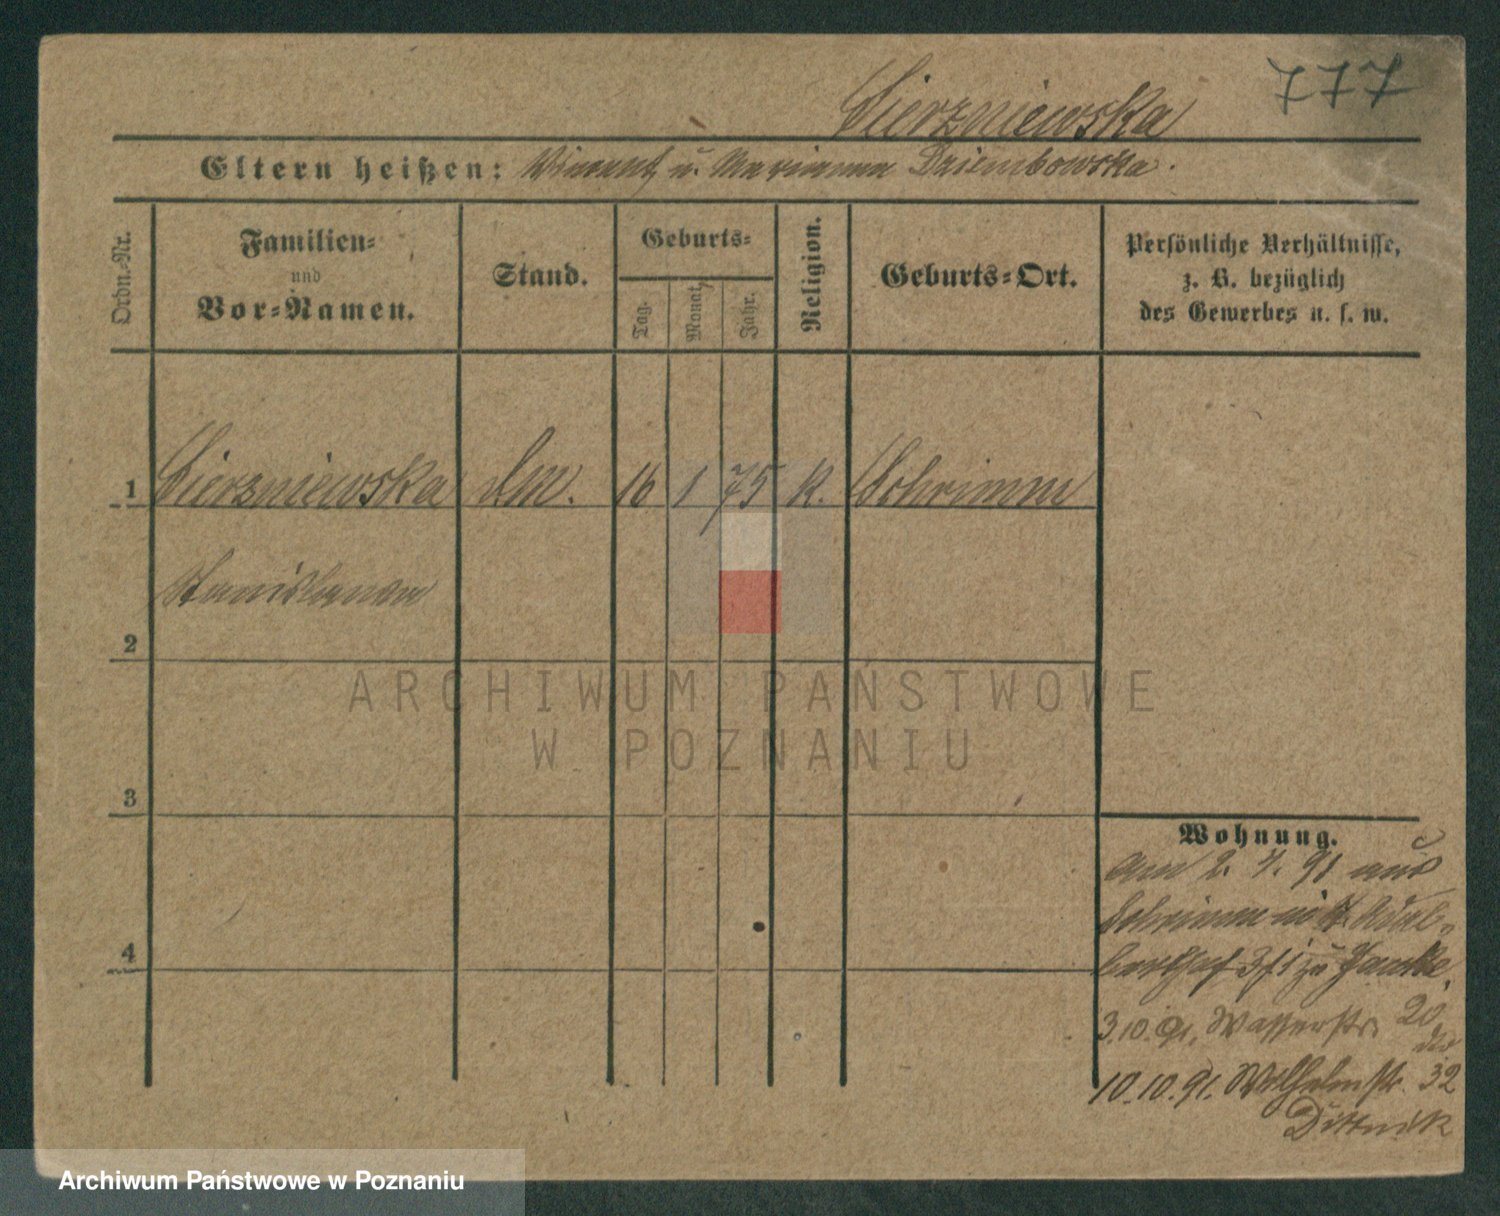 777
Sierzniewska
Eltern heißen: Vincent u. Marianna Dziembowska.
Ordn.-Nr.
Familien- und Vor-Namen.
Stand.
Geburts-
Tag.
Monat.
Jahr.
Religion.
Geburts-Ort.
Persönliche Verhältnisse,
z. B. bezüglich
des Gewerbes u. s. w.
1 Sierzniewska 16 1 75 K. Schrimm
Stanislawa
2
3
4
Wohnung.
am 2. 7. 91 aus
Schrimm Adal-
zu
3.10.91. Wasserstr. 20
10.10.91. Wilhelmstr. 32
Dittrich
ARCHIWUM PAŃSTWOWE
W POZNANIU
Archiwum Państwowe w Poznaniu